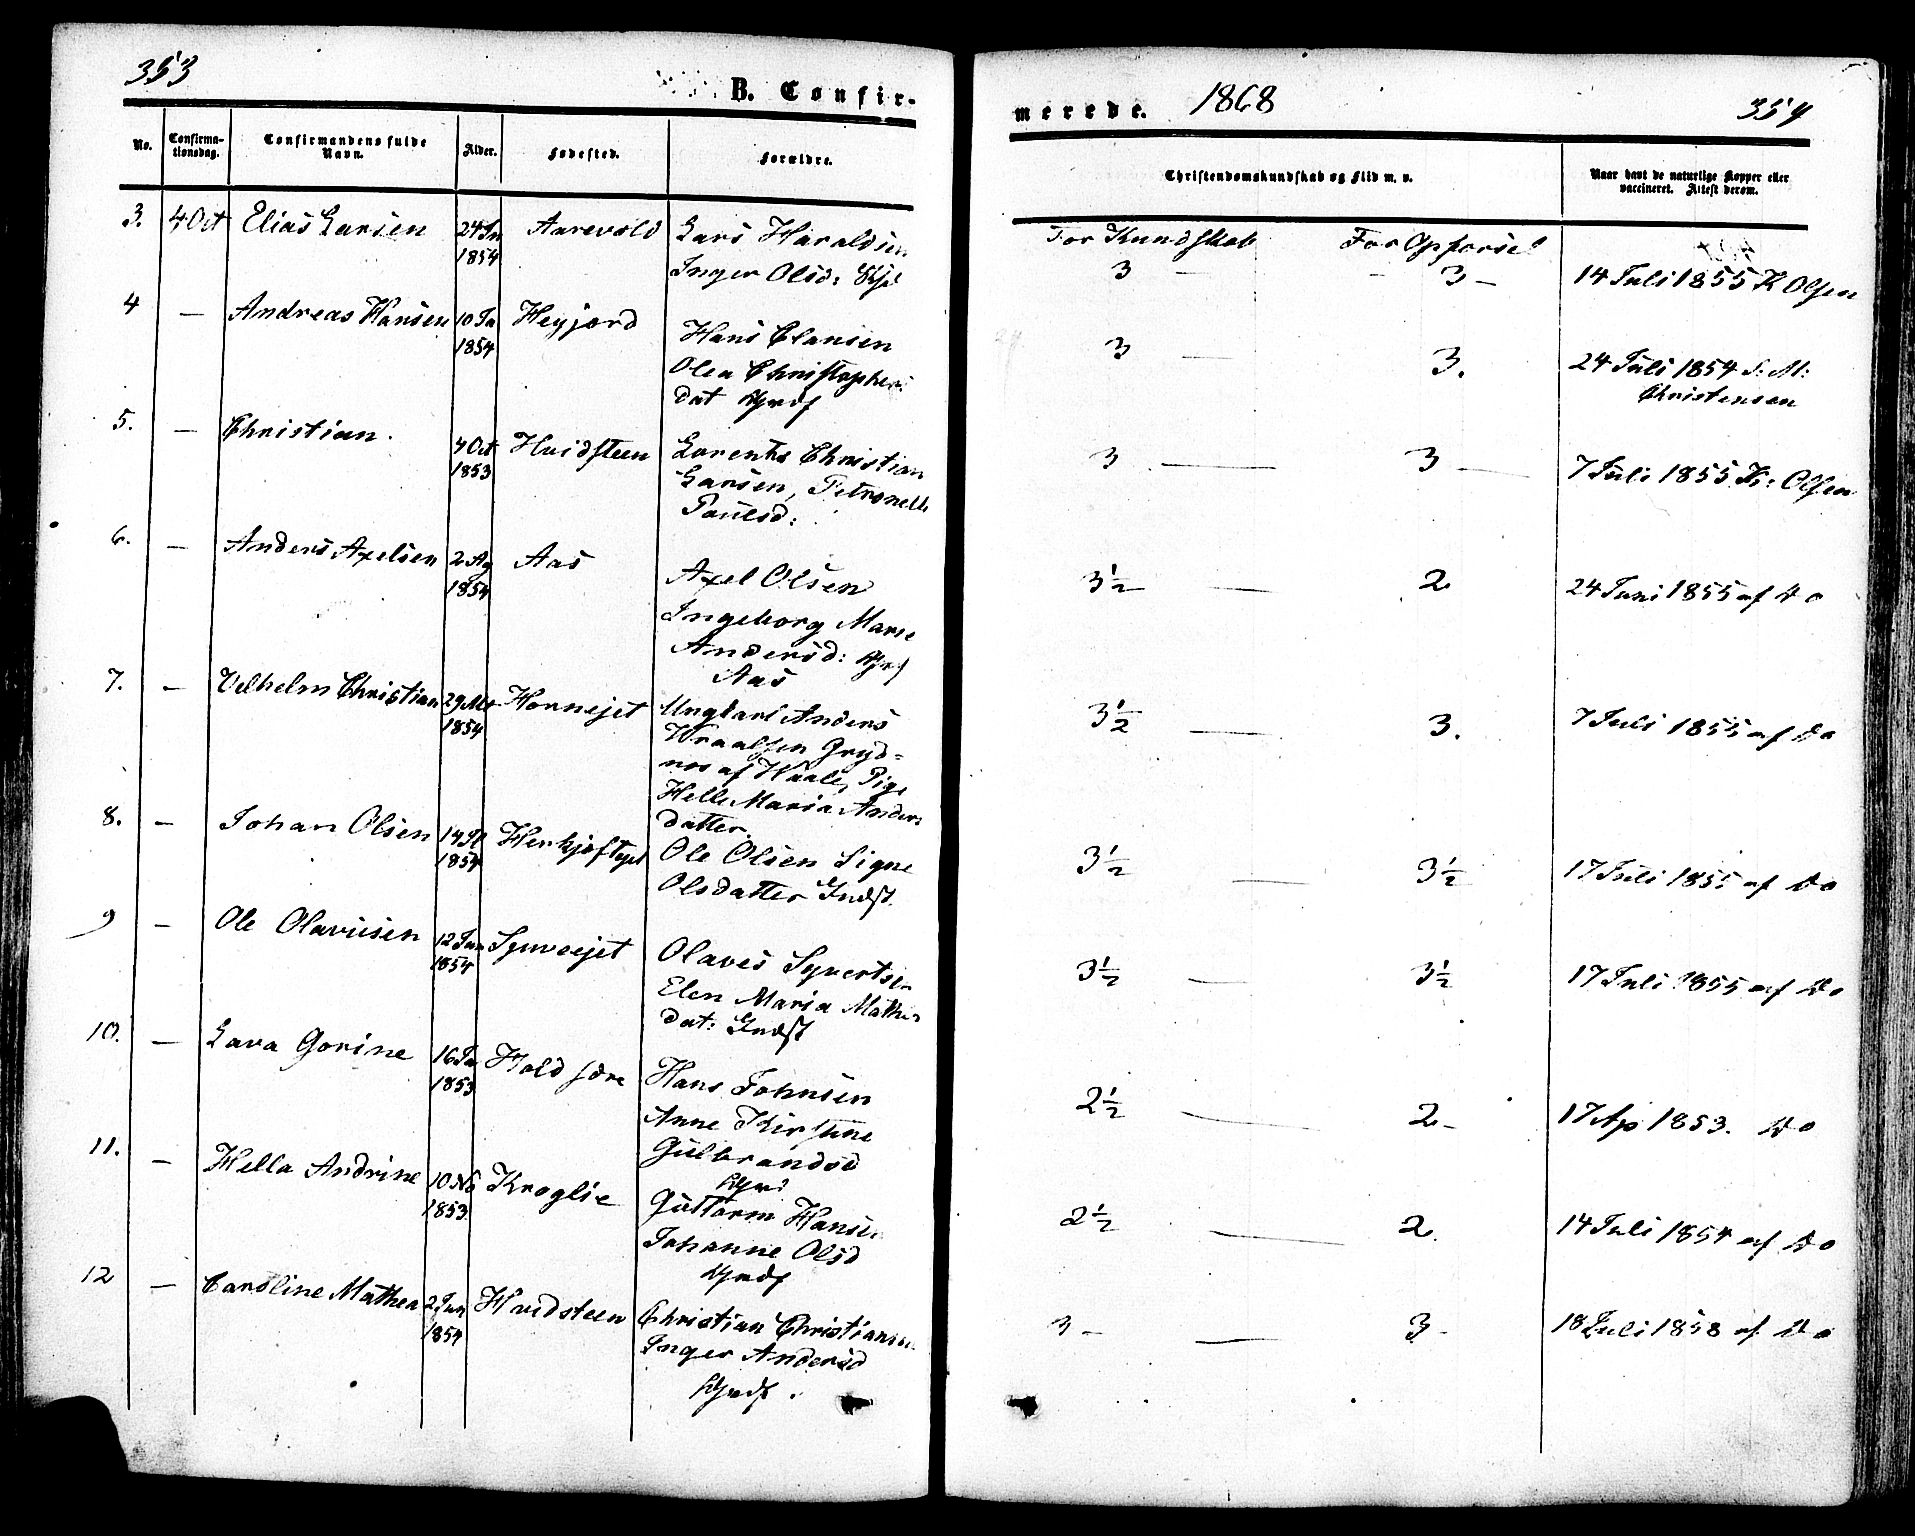 353
B. Confir-
No.
Confirma-
tionsdag.
Confirmandens fulde
Navn.
Alder.
Fødested.
Forældre.
3. 4 Oct Elias Larsen 24 Jn Aarevold Lars Haraldsen
1854 Inger Olsd:
4 — Andreas Hansen 10 Ja Heyjord Hans Clausen
1854 Olea Christophers
dat Grdf
5. — Christian. 4 Oct Hvidsteen Lorents Christian
1853 Larsen, Petronelle
Paulsd:
6. — Anders Axelsen 2 Ag Aas Axel Olsen
1854 Ingeborg Marie
Andersd:
Aas
7. — Vilhelm Christian 29 Mt Hornejet Ungkarl Anders
1854 Wraalsen Gryd=
nes af Waale, Pige
Helle Maria Anders
datter.
8. — Johan Olsen 14 1854 Ole Olsen Signe
Olsdatter Indst.
9 — Ole Olavusen 12 Jan Synverjet Olaves Syvertsen
1854 Elen Maria Mathis
dat: Indst
10. — Lava Gorine 16 Ja Hold søre Hans Johnsen
1853 Anne Kirstine
Gulbrandsd
11. — Hella Andrine 10 No Kroglie Guttorm Hansen
1853 Johanne Olsd
Grdf
12 — Caroline Mathea 2 Jan Hvidsteen Christian Christiansen
1854 Inger Andersd
Grdf.
merede. 1868 354
Christendomskundskab og Flid m. v.
Naar havt de naturlige Kopper eller
vaccineret. Attest derom.
For Kundskab For Opførsel
3 — - 3 — 14 Juli 1855 K Olsen
3 — 3. 24 Juli 1854 S: M:
Christensen
3 — 3 — 7 Juli 1855 K: Olsen
3½ — 2 24 Juni 1855 af Do
3½ — 3. 7 Juli 1855 af Do
3½ — 3½ 17 Juli 1855 af Do
3½ — 3½ 17 Juli 1855 af Do
2½ — 2 - 17 Ap 1853. Do
2½ — 2. 14 Juli 1854 af Do
3 - — 3 - 18 Juli 1858 af Do